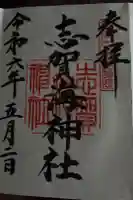 奉拝
志賀海神社
令和六年五月二日